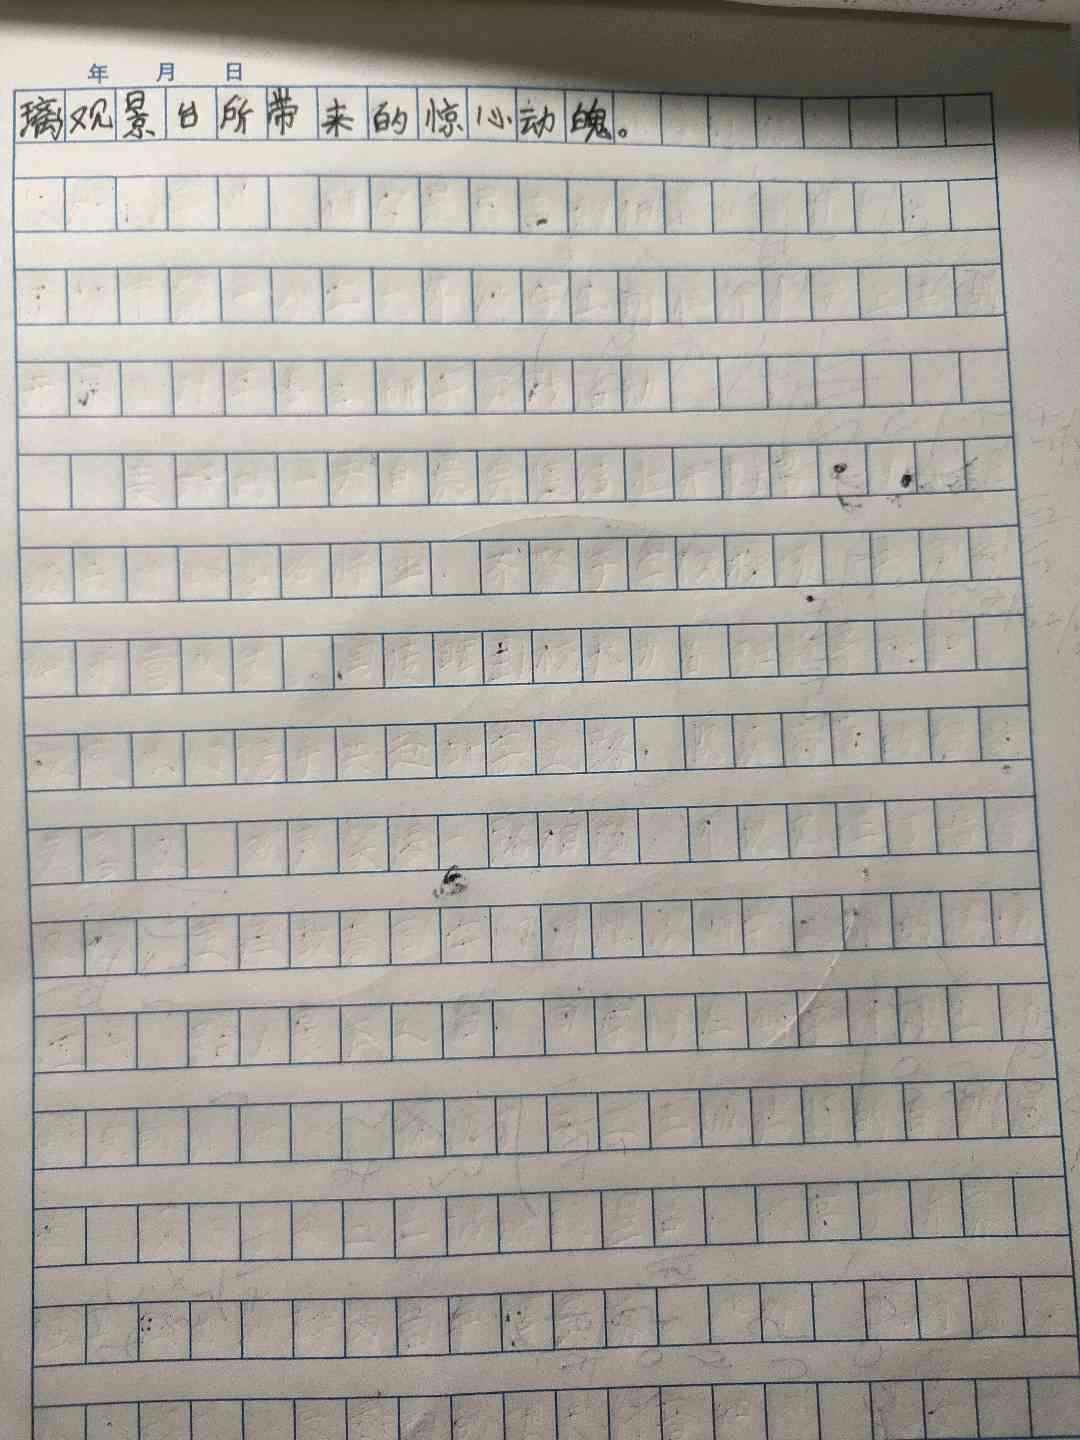 年 月 日
璃观景台所带来的惊心动魄。